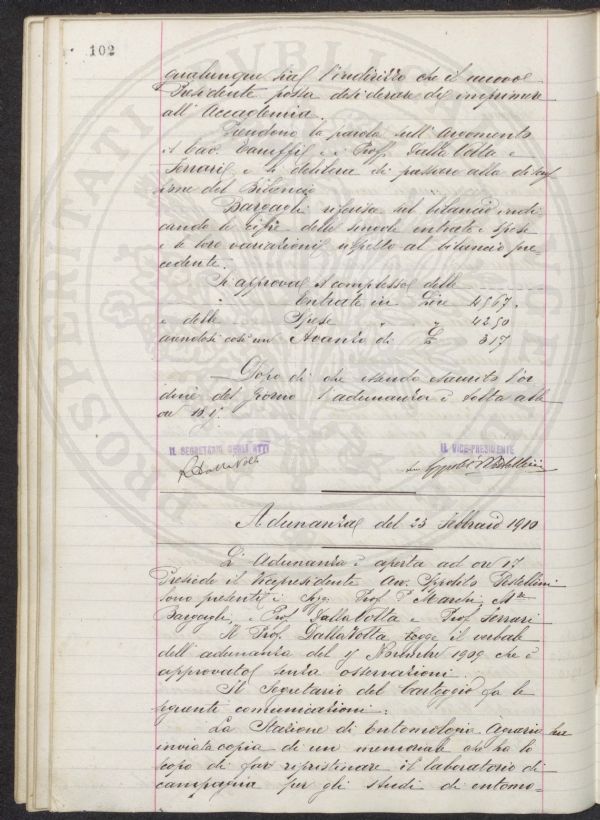 102
qualunque sia l'indirizzo che il nuovo
Presidente possa desiderare di imprimere
all'Accademia.
Prendono la parola sull'argomento
il Cav. e i Prof. Dalla Volta e
Ferrari e si delibera di passare alla discus
sione del Bilancio
Bargagli riferisce sul bilancio indi
cando le cifre delle singole entrate e spese
e le loro variazioni rispetto al bilancio pre
cedente.
Si approva il complesso delle
Entrate in Lire 4567.
e delle Spese " " 4250
avendosi così un Avanzo di L 317
Dopo di che essendo esaurito l'or
dine del giorno l'adunanza è sciolta alle
ore
IL SEGRETARIO DEGLI ATTI
IL VICE-PRESIDENTE
R Dalla Volta
Ippolito Pestellini
Adunanza del 23 Febbraio 1910
L'Adunanza è aperta ad ore 17
Presiede il Vicepresidente Avv. Ippolito Pestellini
sono presenti i Sigg. Prof. P. Marchi, Mse
Bargagli, e Prof. Dalla Volta e Prof. Ferrari
Il Prof. Dalla Volta legge il verbale
dell'adunanza del 7 Novembre 1909 che è
approvato senza osservazioni.
Il Segretario del Carteggio fa le
seguenti comunicazioni:
La Stazione di Entomologia Agraria ha
inviata copia di un memoriale che ha lo
scopo di far ripristinare il laboratorio di
campagna per gli studi di entomo=
PROSPERITATI PUBLICAE